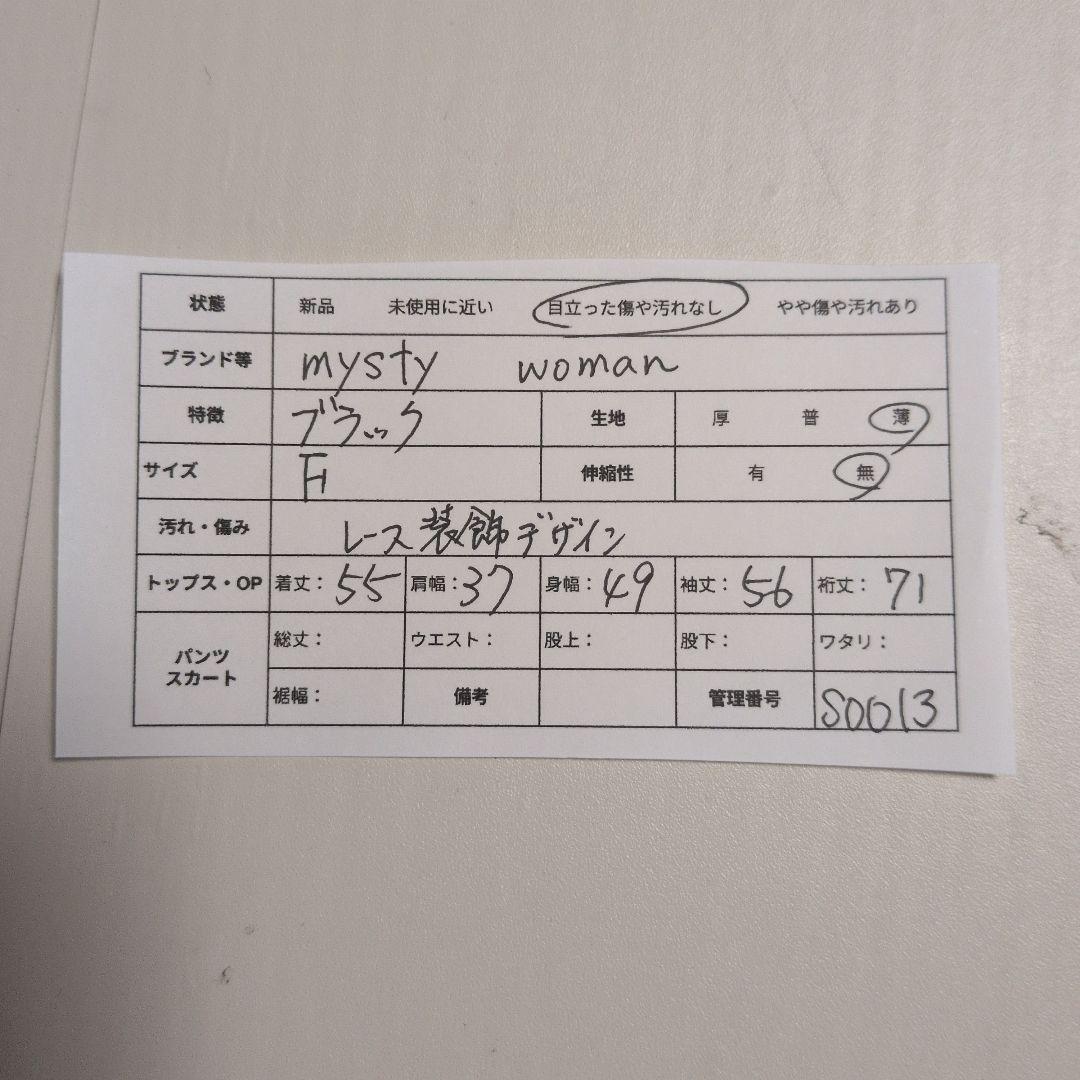 状態 新品 未使用に近い 目立った傷や汚れなし やや傷や汚れあり
ブランド等 mysty woman
特徴 ブラック 生地 厚 普 薄
サイズ F 伸縮性 有 無
汚れ・傷み レース装飾デザイン
トップス・OP 着丈：55 肩幅：37 身幅：49 袖丈：56 裄丈：71
パンツ スカート 総丈： ウエスト： 股上： 股下： ワタリ：
裾幅： 備考 管理番号 S0013